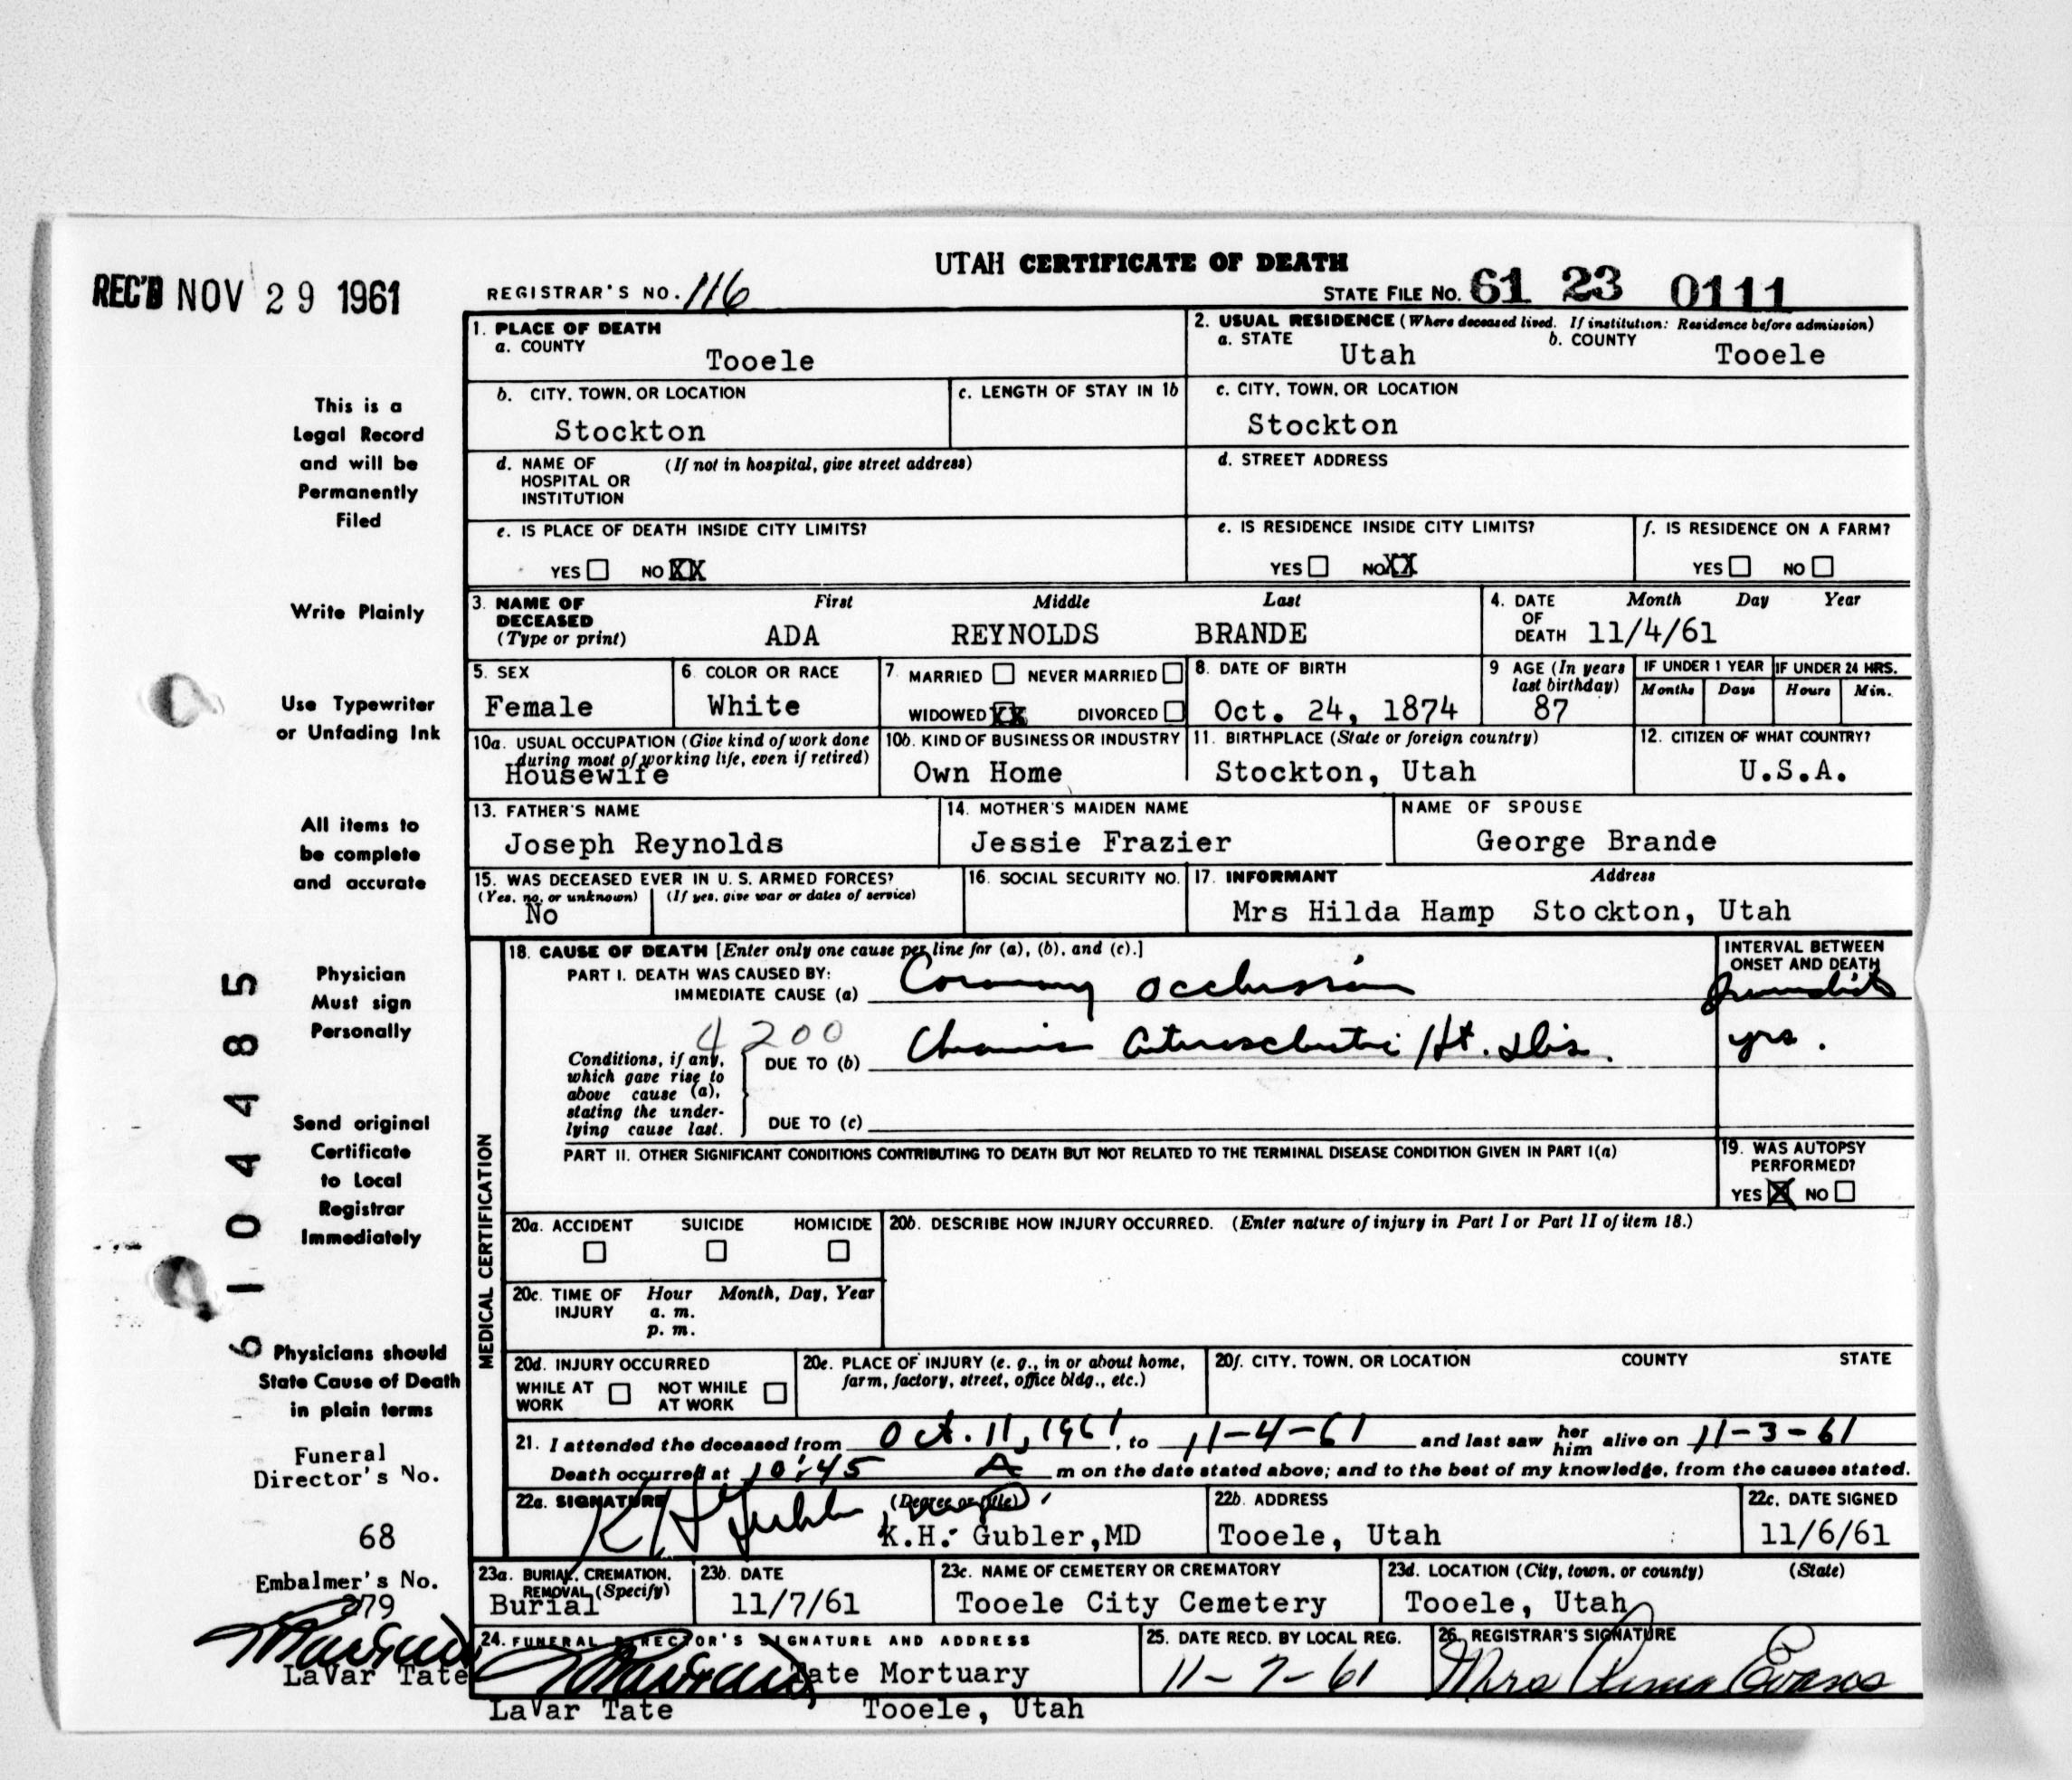 UTAH CERTIFICATE OF DEATH
REC'D NOV 29 1961
REGISTRAR'S NO. 116
STATE FILE NO. 61 23 0111
1. PLACE OF DEATH
a. COUNTY
Tooele
2. USUAL RESIDENCE (Where deceased lived. If institution: Residence before admission)
a. STATE
Utah
b. COUNTY
Tooele
b. CITY, TOWN, OR LOCATION
Stockton
c. LENGTH OF STAY IN 1b
c. CITY, TOWN, OR LOCATION
Stockton
d. NAME OF HOSPITAL OR INSTITUTION
(If not in hospital, give street address)
d. STREET ADDRESS
e. IS PLACE OF DEATH INSIDE CITY LIMITS?
YES NO XX
e. IS RESIDENCE INSIDE CITY LIMITS?
YES NO XX
f. IS RESIDENCE ON A FARM?
YES NO
3. NAME OF DECEASED
(Type or print)
First Middle Last
ADA REYNOLDS BRANDE
4. DATE OF DEATH
Month Day Year
11/4/61
5. SEX
Female
6. COLOR OR RACE
White
7. MARRIED NEVER MARRIED
WIDOWED XX DIVORCED
8. DATE OF BIRTH
Oct. 24, 1874
9 AGE (In years last birthday)
87
IF UNDER 1 YEAR
Months Days
IF UNDER 24 HRS.
Hours Min.
10a. USUAL OCCUPATION (Give kind of work done during most of working life, even if retired)
Housewife
10b. KIND OF BUSINESS OR INDUSTRY
Own Home
11. BIRTHPLACE (State or foreign country)
Stockton, Utah
12. CITIZEN OF WHAT COUNTRY?
U.S.A.
13. FATHER'S NAME
Joseph Reynolds
14. MOTHER'S MAIDEN NAME
Jessie Frazier
NAME OF SPOUSE
George Brande
15. WAS DECEASED EVER IN U. S. ARMED FORCES?
(Yes, no, or unknown) (If yes, give war or dates of service)
No
16. SOCIAL SECURITY NO.
17. INFORMANT Address
Mrs Hilda Hamp Stockton, Utah
MEDICAL CERTIFICATION
18. CAUSE OF DEATH [Enter only one cause per line for (a), (b), and (c).]
PART I. DEATH WAS CAUSED BY:
IMMEDIATE CAUSE (a) Coronary occlusion
INTERVAL BETWEEN ONSET AND DEATH
4200
Conditions, if any, which gave rise to above cause (a), stating the underlying cause last.
DUE TO (b) Chronic Arterosclerotic Ht. Dis.
yrs.
DUE TO (c)
PART II. OTHER SIGNIFICANT CONDITIONS CONTRIBUTING TO DEATH BUT NOT RELATED TO THE TERMINAL DISEASE CONDITION GIVEN IN PART I(a)
19. WAS AUTOPSY PERFORMED?
YES X NO
20a. ACCIDENT SUICIDE HOMICIDE
20b. DESCRIBE HOW INJURY OCCURRED. (Enter nature of injury in Part I or Part II of item 18.)
20c. TIME OF INJURY
Hour Month, Day, Year
a. m.
p. m.
20d. INJURY OCCURRED
WHILE AT WORK NOT WHILE AT WORK
20e. PLACE OF INJURY (e. g., in or about home, farm, factory, street, office bldg., etc.)
20f. CITY, TOWN, OR LOCATION COUNTY STATE
21. I attended the deceased from Oct. 11, 1961, to 11-4-61 and last saw her him alive on 11-3-61
Death occurred at 10:45 A m on the date stated above; and to the best of my knowledge, from the causes stated.
22a. SIGNATURE (Degree or title)
K H Gubler
K.H. Gubler,MD
22b. ADDRESS
Tooele, Utah
22c. DATE SIGNED
11/6/61
23a. BURIAL, CREMATION, REMOVAL (Specify)
Burial
23b. DATE
11/7/61
23c. NAME OF CEMETERY OR CREMATORY
Tooele City Cemetery
23d. LOCATION (City, town, or county) (State)
Tooele, Utah
24. FUNERAL DIRECTOR'S SIGNATURE AND ADDRESS
Tate Mortuary
LaVar Tate Tooele, Utah
25. DATE RECD. BY LOCAL REG.
11-7-61
26. REGISTRAR'S SIGNATURE
Mrs Evans
This is a
Legal Record
and will be
Permanently
Filed
Write Plainly
Use Typewriter
or Unfading Ink
All items to
be complete
and accurate
Physician
Must sign
Personally
Send original
Certificate
to Local
Registrar
Immediately
Physicians should
State Cause of Death
in plain terms
61 04485
Funeral
Director's No.
68
Embalmer's No.
279
LaVar Tate